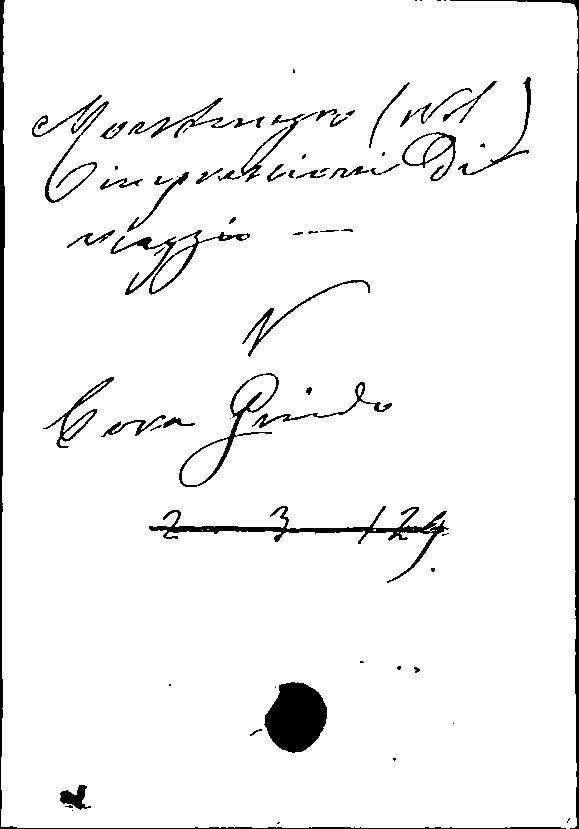 Montenegro (nel)
impressioni di
viaggio —
V
Cora Guido
2 3 129